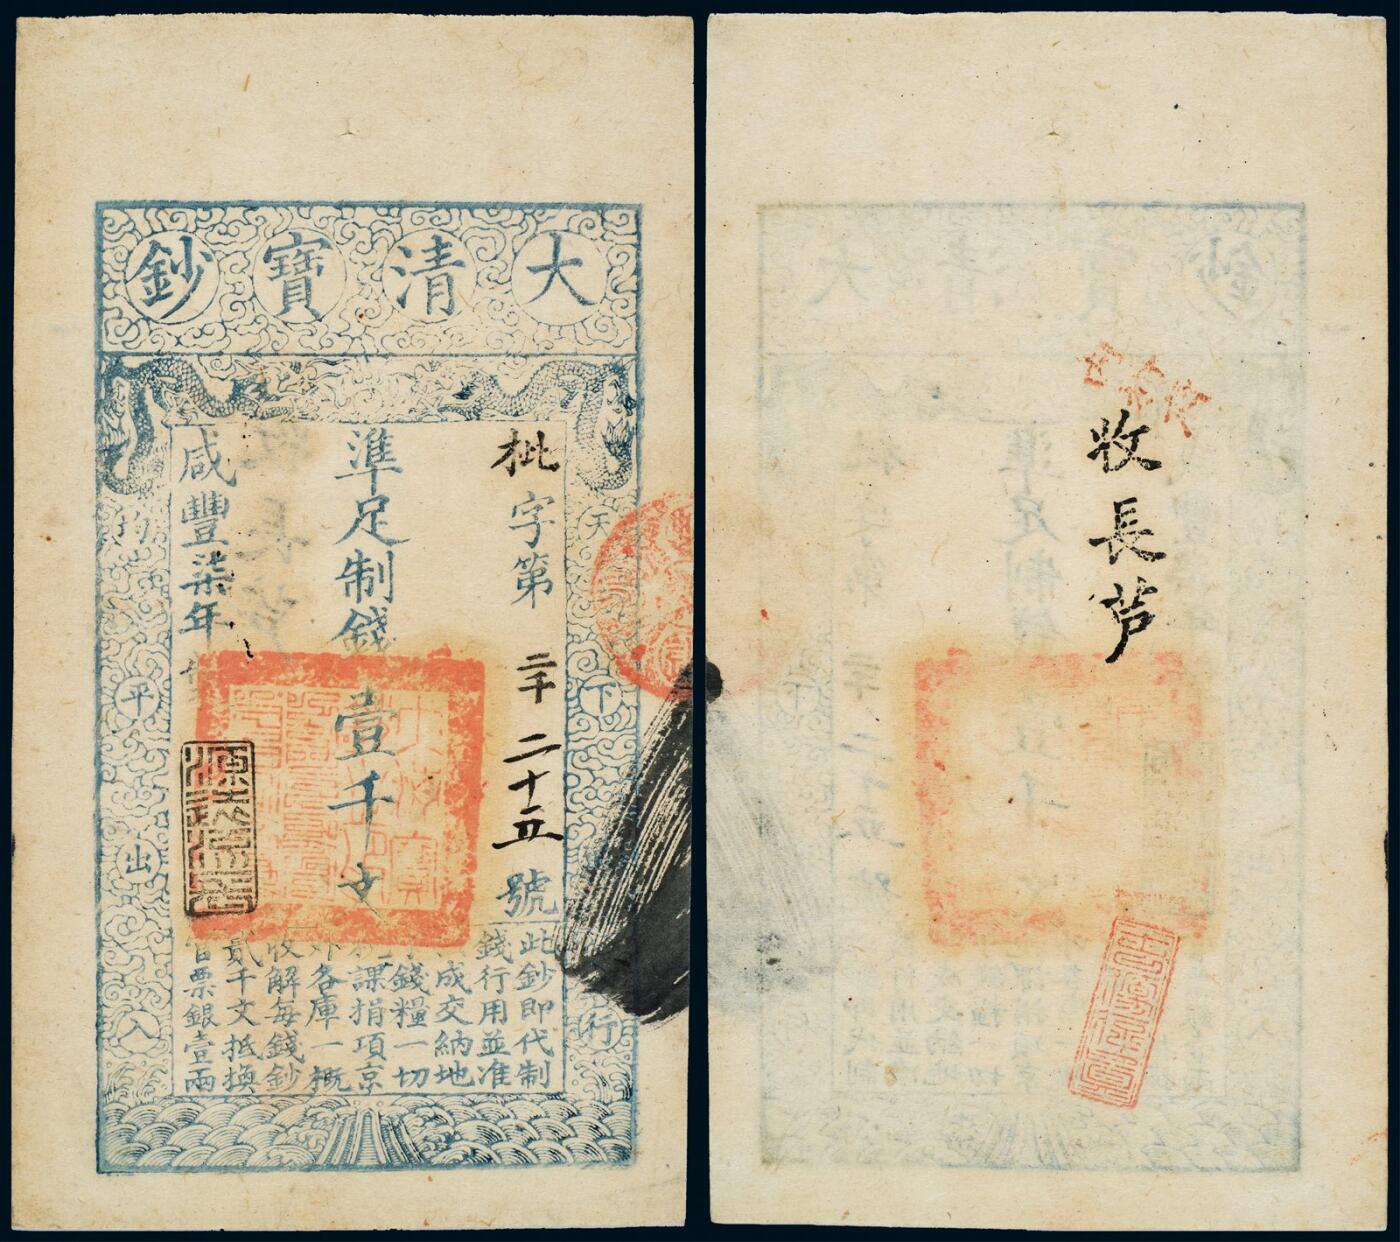 大清寶鈔
枇字第二千二十五號
準足制錢壹千文
咸豐柒年
天下
行
均平出入
此鈔即代制
錢行用並准
成交納地
錢糧一切
課捐項京
外各庫一概
收解每錢鈔
貳千文抵換
官票銀壹兩
收長芦